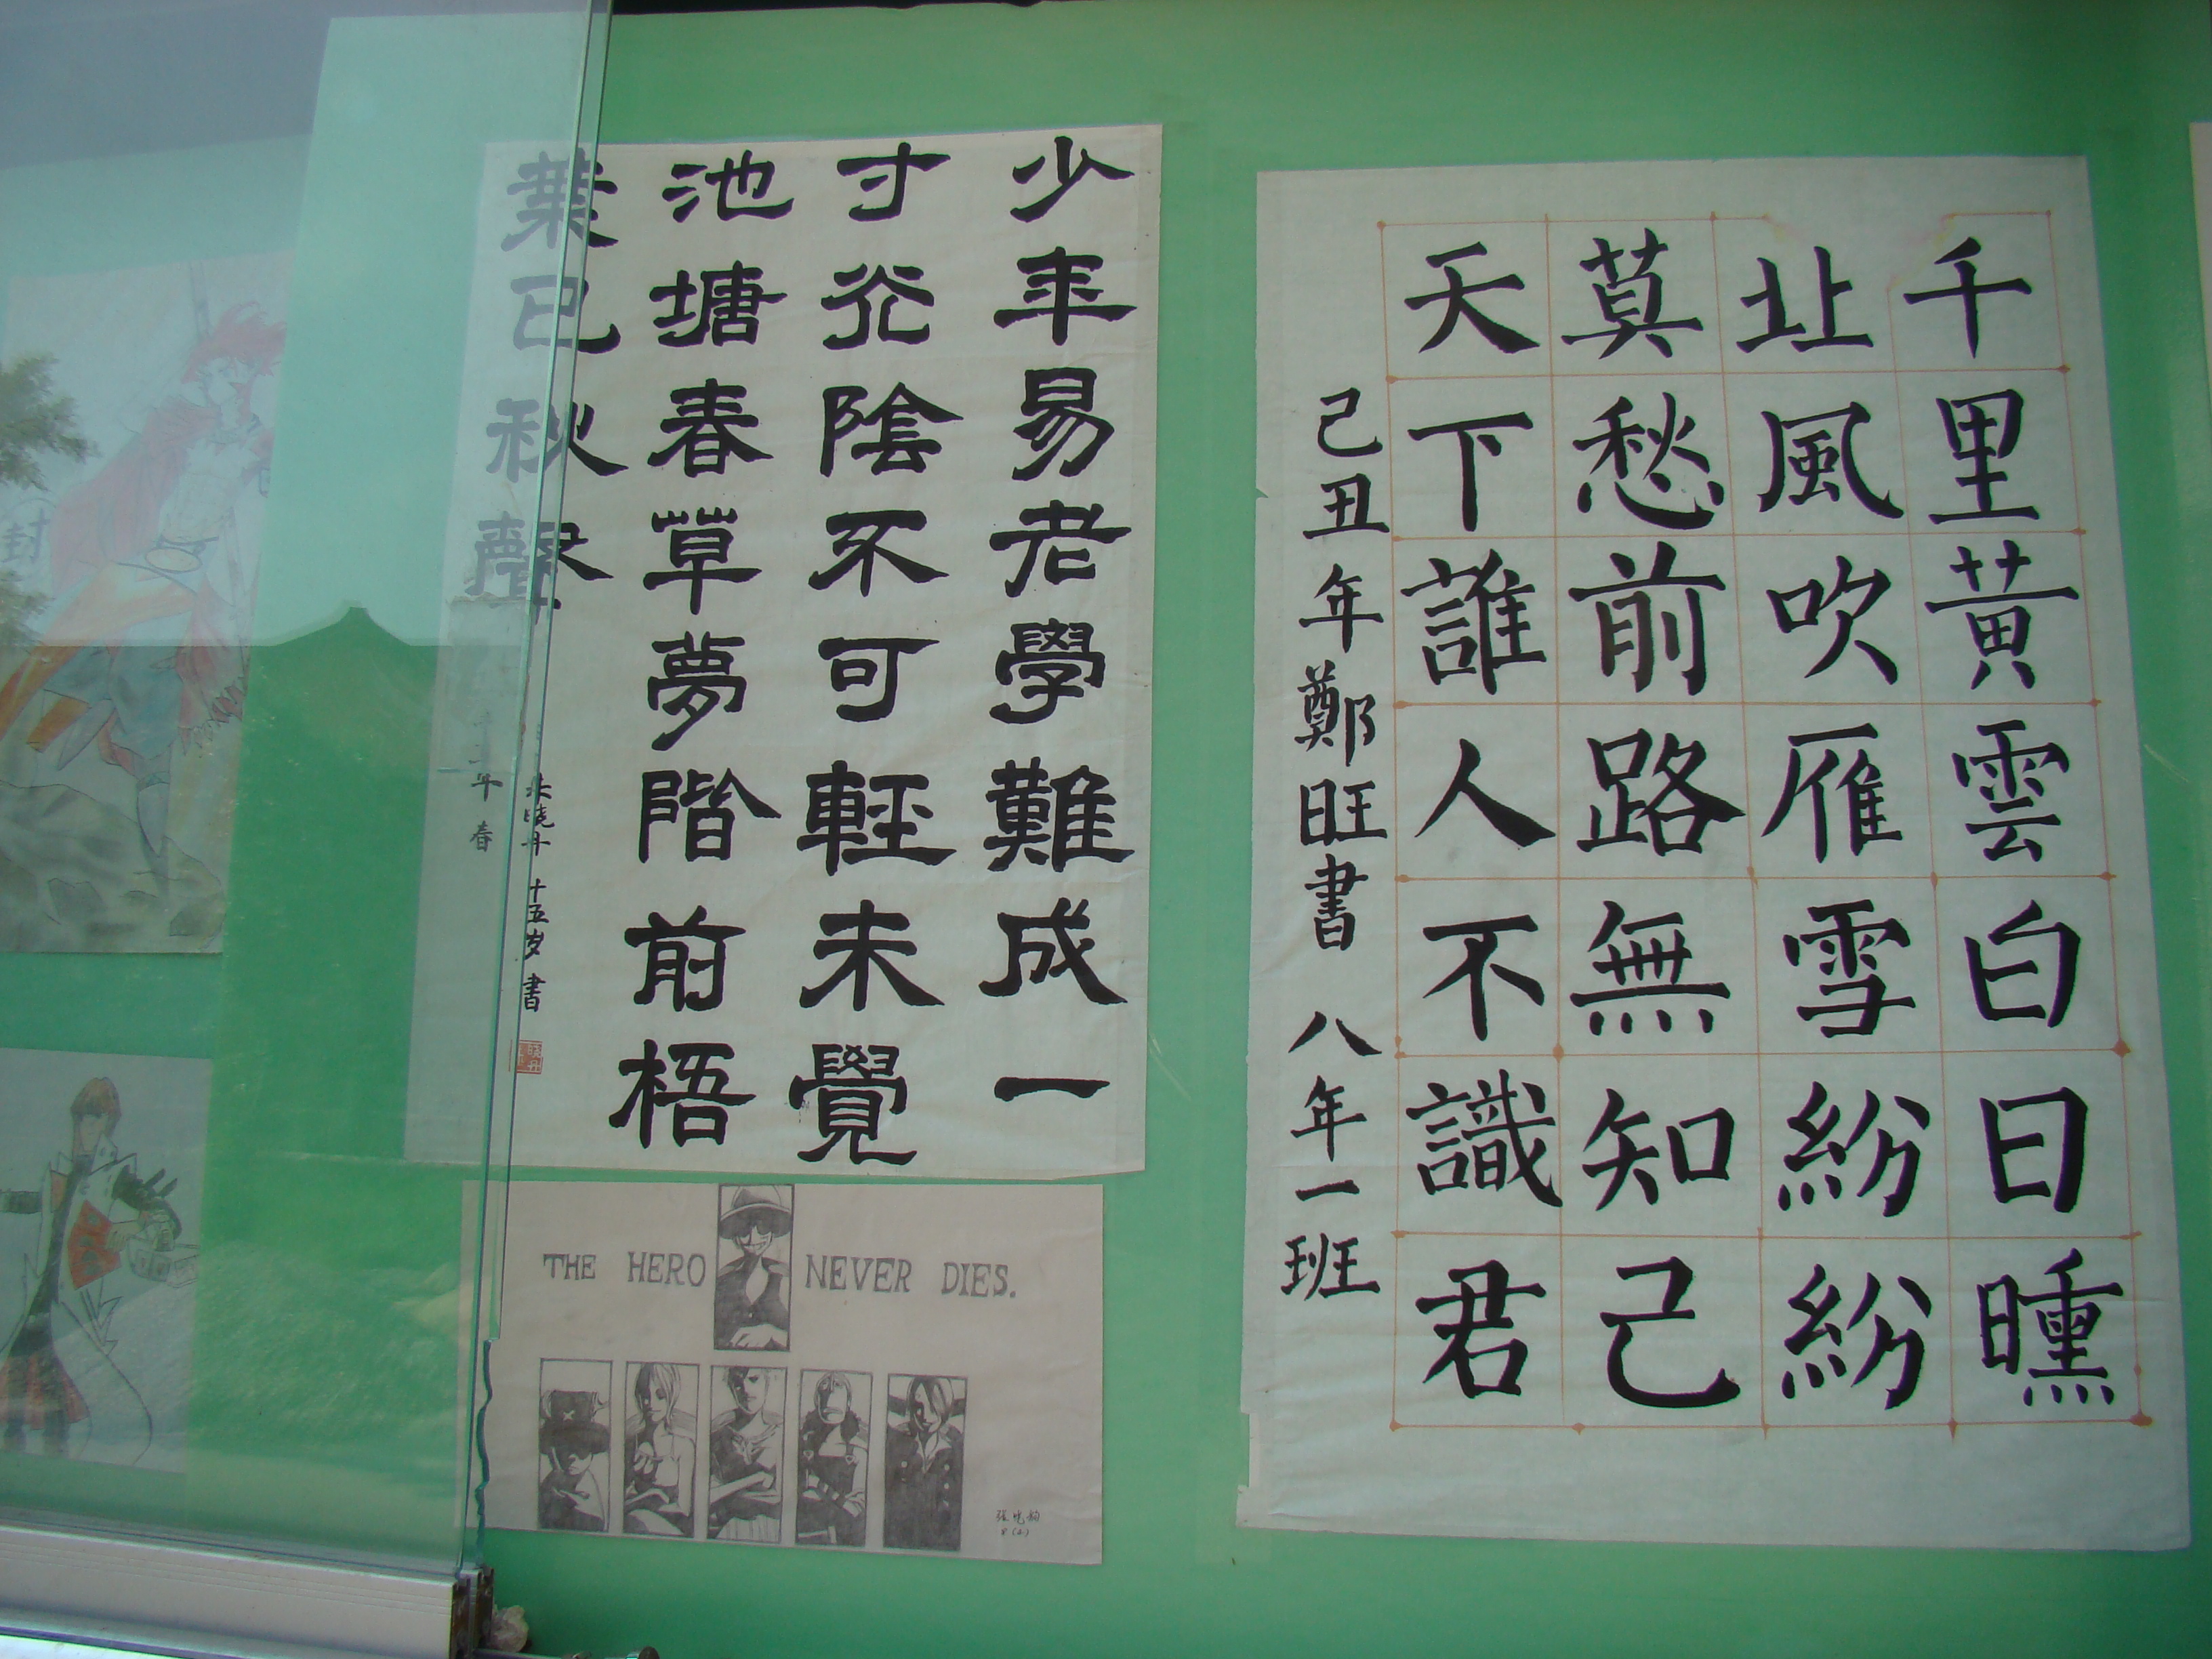 千里黃雲白日曛
北風吹雁雪紛紛
莫愁前路無知己
天下誰人不識君
己丑年鄭旺書 八年一班
少年易老學難成一
寸光陰不可輕未覺
池塘春草夢階前梧
葉已秋聲
曉丹 十五岁 書
年 春
THE HERO NEVER DIES.
封